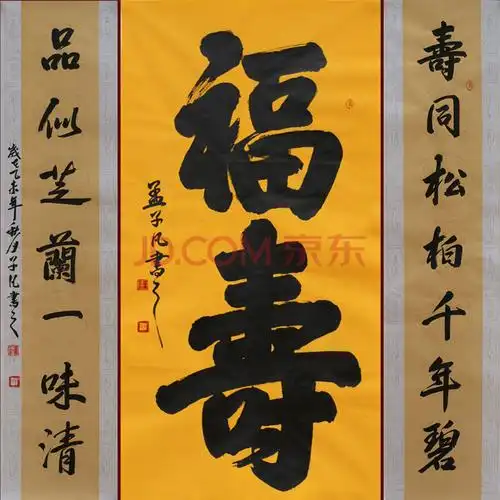 壽同松柏千年碧
福壽
孟子凡書之
品似芝蘭一味清
歲在乙未年秋月子凡書之
JD.COM 京东